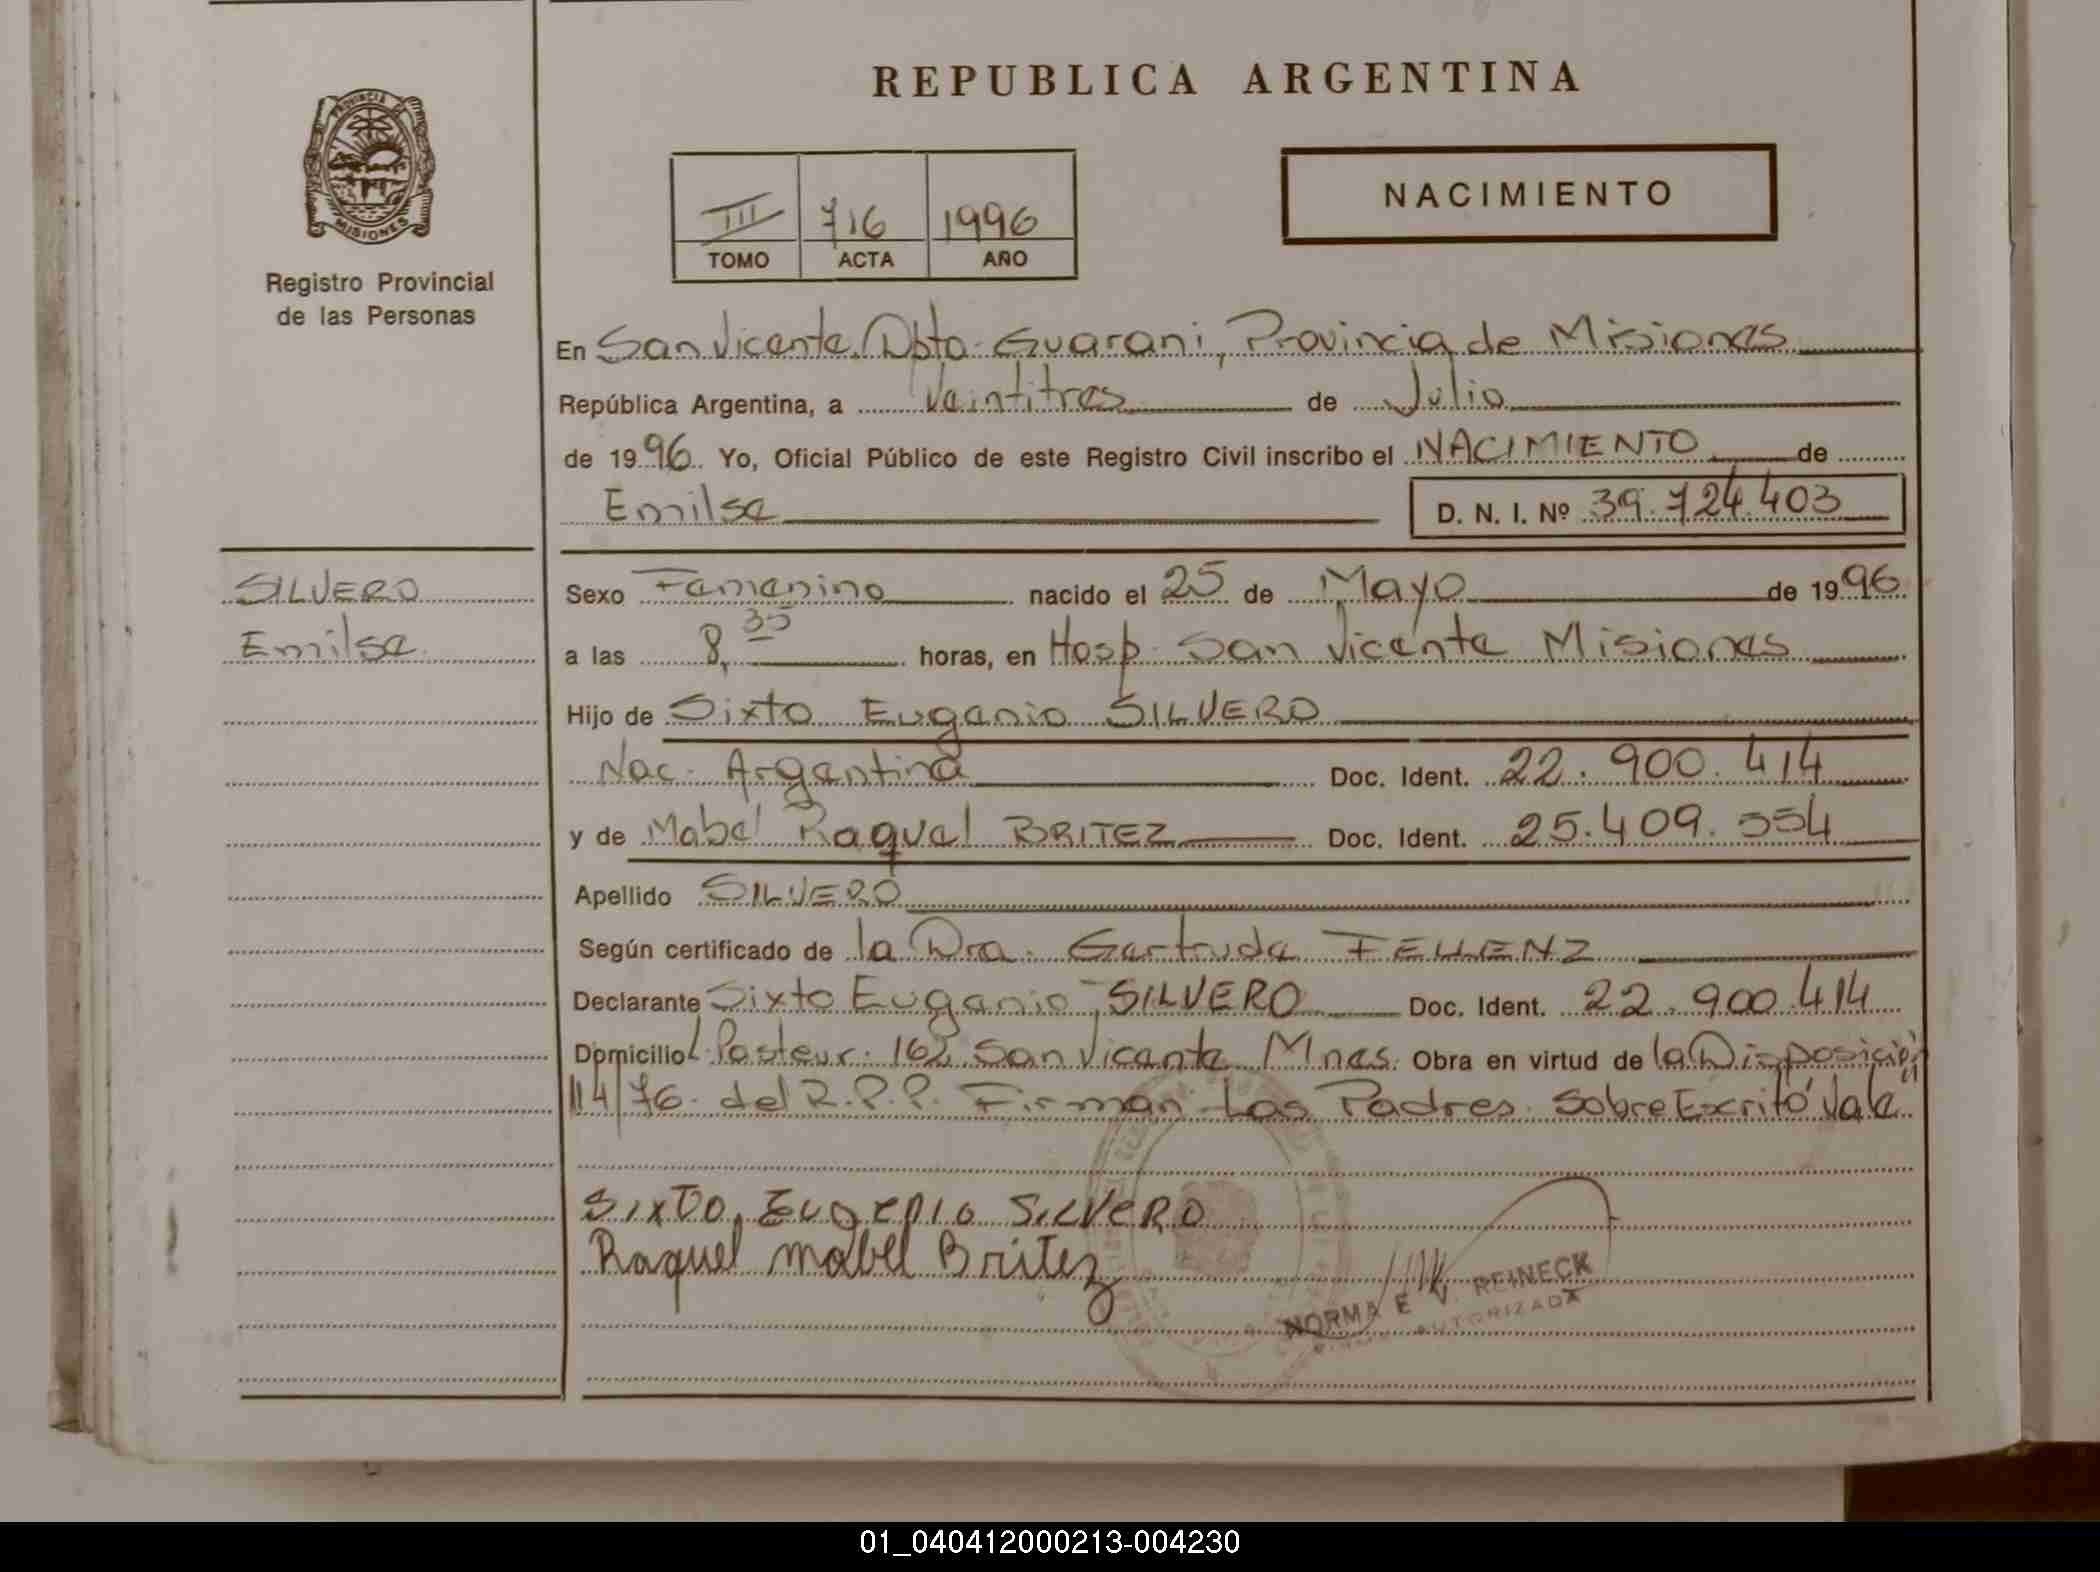 REPUBLICA ARGENTINA
PROVINCIA DE MISIONES
Registro Provincial
de las Personas
III 716 1996
TOMO ACTA AÑO
NACIMIENTO
En San Vicente, Dpto. Guarani, Provincia de Misiones
República Argentina, a Veintitres de Julio
de 1996. Yo, Oficial Público de este Registro Civil inscribo el NACIMIENTO de
Emilse D. N. I. Nº 39.724.403
SILVERO
Emilse
Sexo Femenino nacido el 25 de Mayo de 1996.
a las 8,35 horas, en Hosp. San Vicente Misiones
Hijo de Sixto Eugenio SILVERO
Nac. Argentina Doc. Ident. 22.900.414
y de Mabel Raquel BRITEZ Doc. Ident. 25.409.554
Apellido SILVERO
Según certificado de la Dra. Gertruda FELLENZ
Declarante Sixto Eugenio SILVERO Doc. Ident. 22.900.414
Domicilio L. Pasteur. 162 San Vicente Mnes. Obra en virtud de la Disposición
114/76. del R.P.P. Firman Los Padres. Sobre Escrito "Vale"
Sixto Eugenio Silvero
Raquel Mabel Britez
NORMA E. V. REINECK
FIRMA AUTORIZADA
01_040412000213-004230